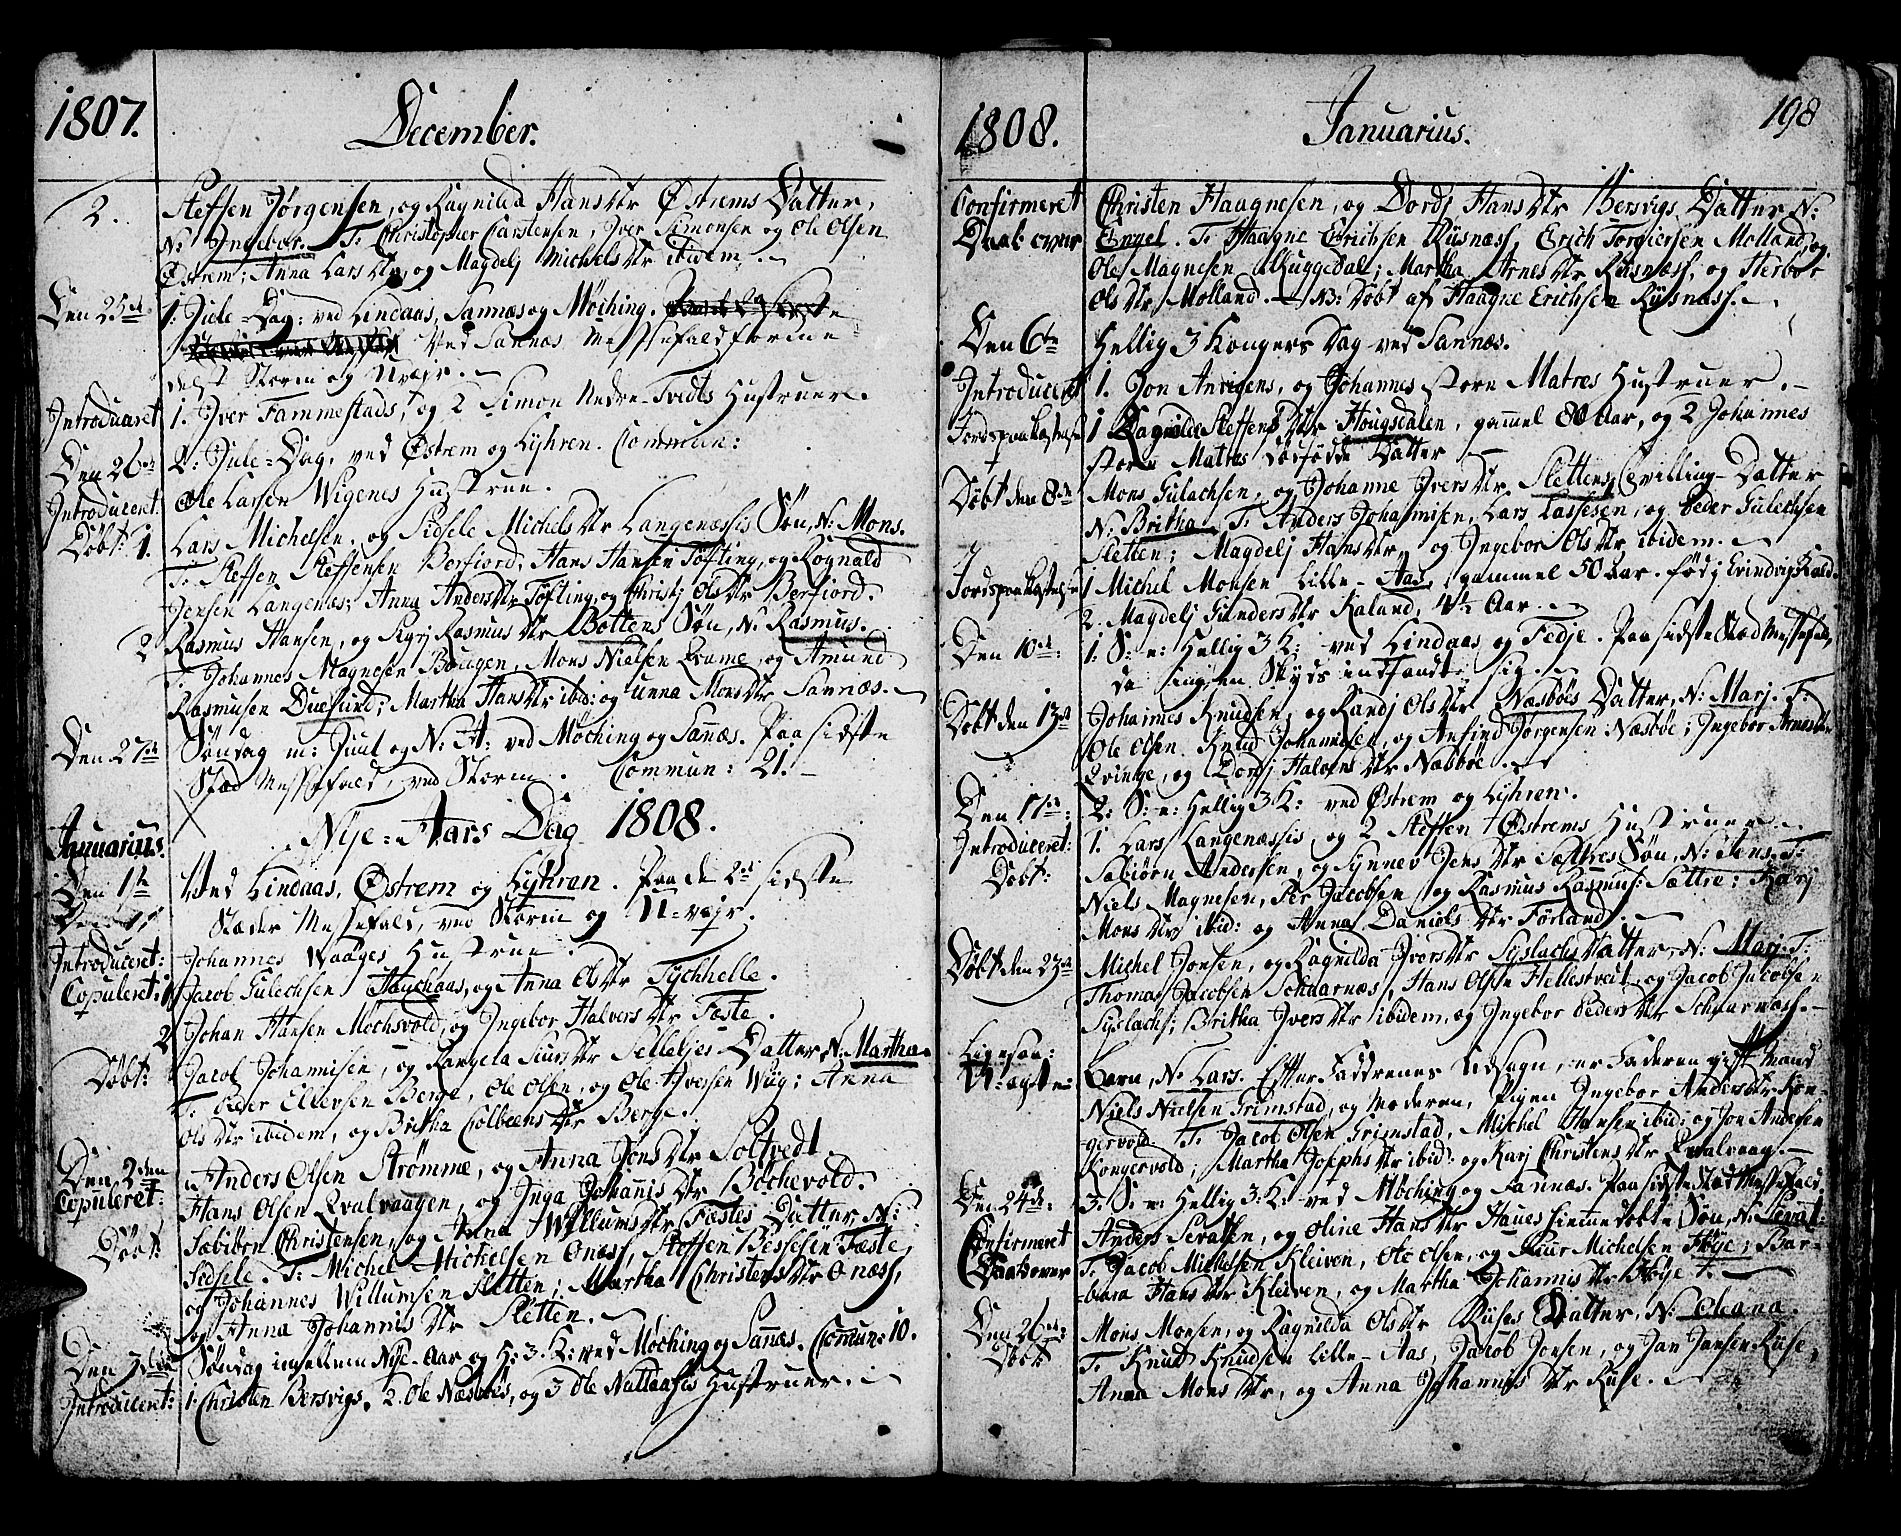 1807.
December.
2. Steffen Jørgensen, og Ragnilda Hansdtr Østrems Datter,
N: Ingebor. T: Christopher Carstensen, Iver Simonsen og Ole Olsen
Østrem; Anna Larsdtr, og Magdelj Michelsdtr ibidem.
Den 25de 1. Jule-Dag: ved Lindaas, Sannæs og Møching.
Ved Sannæs Messefald formedelst
Storm og Uvejr.
Introduceret 1. Iver Fammestads, og 2 Simon Nedre-Tvedts Hustruer.
Den 26de 2. Jule-Dag, ved Østrem og Lyhren. Commun:
Introduceret: Ole Larsen Wigenes Hustrue.
Døbt: 1. Lars Michelsen, og Sidsele Michelsdtr Langenæssis Søn, N: Mons.
T: Steffen Steffensen Berfiord, Hans Hansen Tøfting, og Rognald
Jensen Langenæs; Anna Andersdtr Tøfting, og Christj Olsdtr Berfiord.
2 Rasmus Hansen, og Sigrj Rasmusdtr Bottens Søn, N: Rasmus.
T: Johannes Magnesen Bougen, Mons Nielsen Qvame, og Amund
Rasmusen Duesund; Martha Hansdtr ibid: og Unna Monsdtr Sannæs.
Den 27de Søndag m: Juul og N: A: ved Møching og Sanæs. Paa sidste
Stæd Messefald, ved Storm. Commun: 21.
Januarius. Nÿe-Aars Dag 1808.
Den 1ste Ved Lindaas, Østrem og Lyhren. Paa de 2de sidste
Stæder Messefald, ved Storm og U-vejr.
Introduceret: Johannes Waages Hustrue.
Copuleret: 1 Jacob Gulechsen Hauchaas, og Anna Olsdtr Tychhelle.
2 Johan Hansen Mochsvold, og Ingebor Halversdtr Fæste.
Døbt: Jacob Johannisen, og Rangela Siursdtr Selleljes Datter, N: Martha.
T: Peder Ellevsen Berge, Ole Olsen, og Ole Iversen Wiig; Anna
Olsdtr ibidem, og Britha Colbeensdtr Berge.
Den 2den Anders Olsen Strømme, og Anna Jensdtr Soltvedt.
Copuleret: Hans Olsen Qvalvaagen, og Inga Johannisdtr Bøchevold.
Døbt: Sæbiørn Christensen, og Anna Willumsdtr Fæstes Datter, N:
Sidsele. T: Michel Michelsen Onæss, Steffen Bessesen Fæste,
og Johannes Willumsen Sletten; Martha Christensdtr Onæss,
og Anna Johannisdtr Sletten.
Den 3die Søndag imellem Nÿe-Aar og H: 3. K: ved Møching og Sanæs. Commun: 10.
Introduceret: 1. Christen Bersvigs, 2. Ole Næsbøes, og 3 Ole Nattaasis Hustruer.
1808.
Januarius.
198
Confirmeret Christen Haagnesen, og Dordj Hansdtr Bersvigs Datter N:
Daab over Engel. T: Haagne Erichsen Riisnæss, Erich Torgiersen Molland, og
Ole Magnesen Ruggedal; Martha Arnesdtr Riisnæss, og Herbor
Olsdtr Molland. NB: Døbt af Haagne Erichsen Riisnæss.
Den 6te Hellig 3 Kongers Dag ved Sannæs.
Introduceret 1. Jon Anvigens, og Johannes store Matres Hustruer.
Jordspaakastelse 1 Ragnilda Steffensdtr Hougsdalen, gammel 80 Aar, og 2 Johannes
store Matres dødfødde Datter
Døbt den 8de Mons Gulachsen, og Johanne Iversdtr Slettens Tvilling-Datter
N: Britha. T: Anders Johannisen, Lars Lassesen, og Peder Gulechsen
Sletten; Magdelj Hansdtr, og Ingebor Olsdtr ibidem.
Jordspaakastelse 1 Michel Monsen Lille-Aas, gammel 50 Aar. fød i Evindvig Kald.
2. Magdelj Gundersdtr Kaland, 4½ Aar.
Den 10de: 1: S: e: Hellig 3 K: ved Lindaas og Fedje. Paa sidste Stæd Messefald,
da ingen Skyds indfandt sig.
Døbt den 13de Johannes Knudsen, og Randj Olsdtr Næsbøes Datter, N: Marj. T:
Ole Olsen, Knud Johannesen, og Anfind Jørgensen Næsbøe; Ingebor Arnesdtr
Qvinge, og Dordj Halvorsdtr Næsbøe.
Den 17de: 2: S: e: Hellig 3 K: ved Østrem og Lyhren.
Introduceret: 1. Lars Langenæssis, og 2 Steffen Østrems Hustruer.
Døbt: Sæbiørn Andersen, og Synnev Jensdtr Sættres Søn, N: Jens. T:
Niels Magnesen, Per Jacobsen, og Rasmus Rasmus: Sættre; Karj
Monsdtr ibid: og Anna Danielsdtr Førland.
Døbt den 23de Michel Jonsen, og Ragnilda Iversdtr Syslachs Datter, N: Marj. T:
Thomas Jacobsen Schaarnæs, Hans Olsen Hellestveit, og Jacob Jacobsen
Syslach; Britha Iversdtr ibidem, og Ingebor Pedersdtr Schaarnæss.
Ligesaa: U-ægte: Barn, N: Lars. Efter Faddrenes Udsagn, er Faderen gift Mand
Niels Nielsen Grimstad, og Moderen, Pigen Ingebor Andersdtr Kongervold.
T: Jacob Olsen Grimstad, Michel Hansen ibid: og Jon Andersen
Kongervold; Martha Josephsdtr ibid: og Karj Christensdtr Qvalvaag.
Den 24de: 3. S: e: Hellig 3. K: ved Møching og Sannæs. Paa sidste Stæd Messefald.
Confirmeret Anders Sevalsen, og Oline Hansdtr Haues hiemmedøbte Søn, N: Seval:
Daab over T: Jacob Michelsen Kleiven, Ole Olsen, og Siur Michelsen Høÿe; Barbara
Hansdtr Kleiven, og Martha Johannisdtr Høÿe.
Den 26de: Døbt Mons Monsen, og Ragnilda Olsdtr Riises Datter, N: Oleana.
T: Knud Knudsen Lille-Aas, Jacob Jonsen, og Jan Jansen Riise,
Anna Monsdtr, og Anna Johannisdtr Riise.